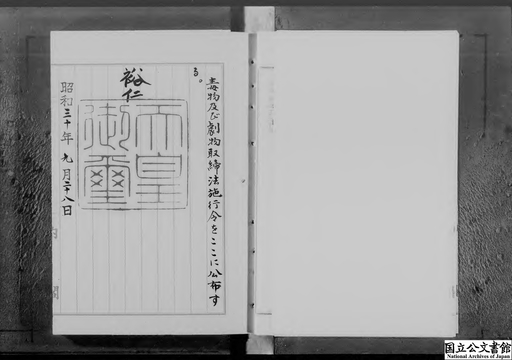 毒物及び劇物取締法施行令をここに公布す
る。
裕仁
天皇
御璽
昭和三十年九月二十八日
国立公文書館
National Archives of Japan